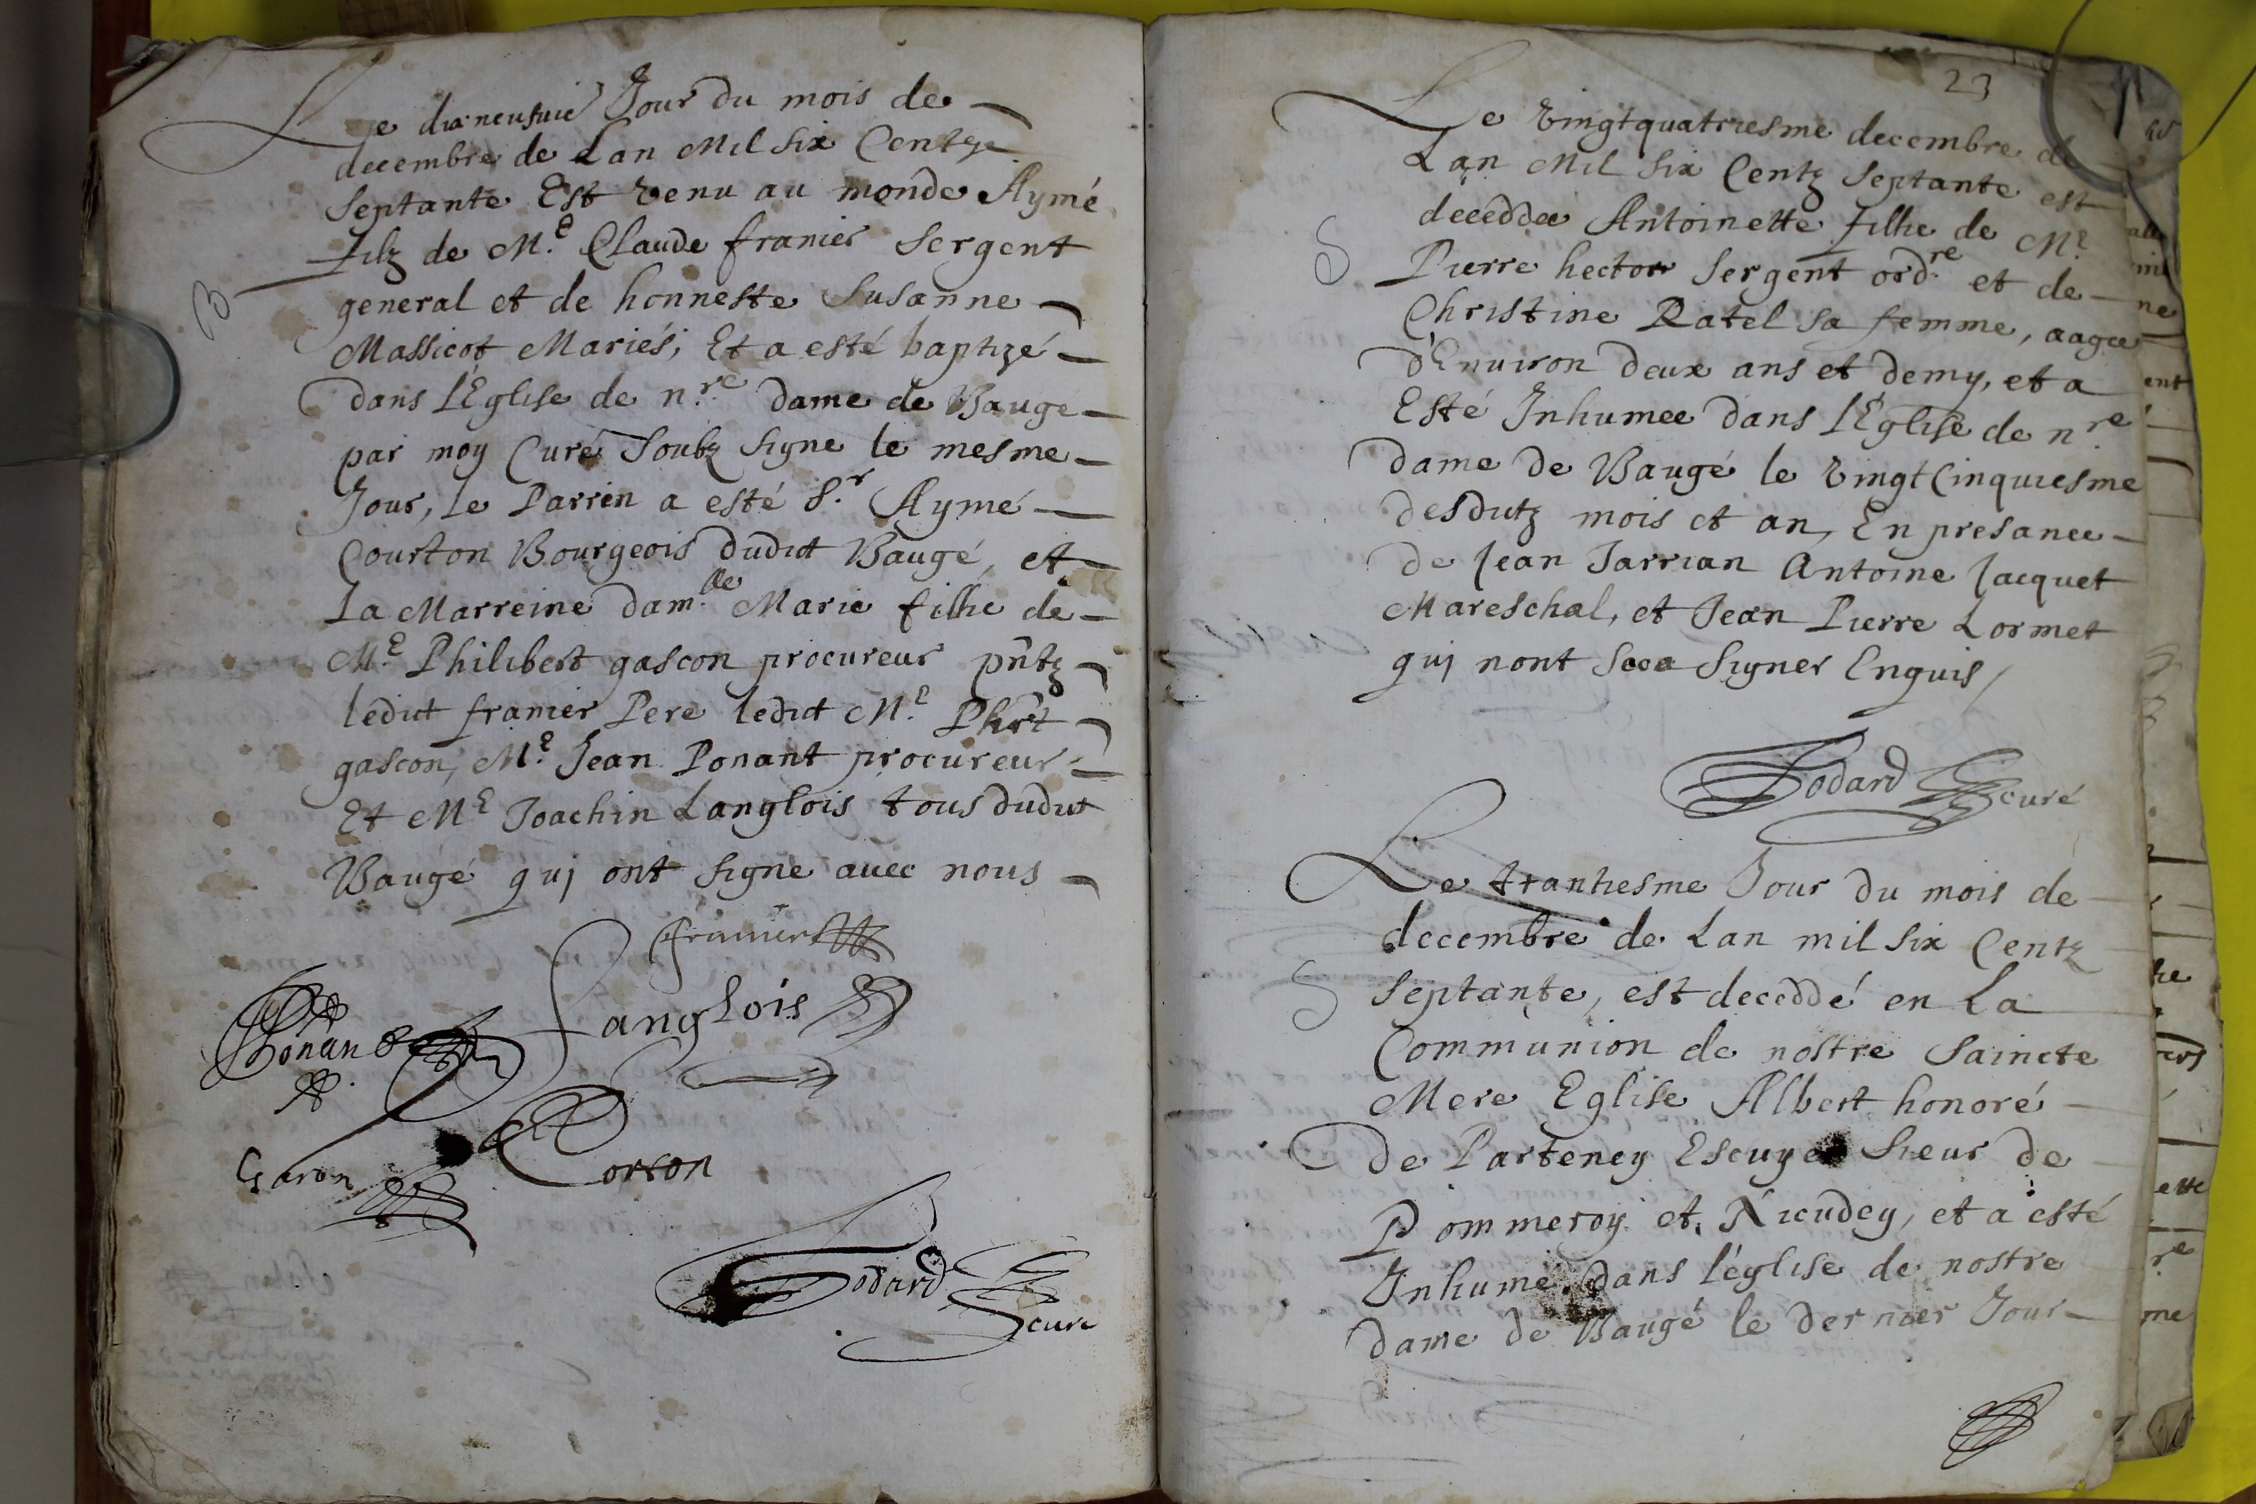 B
Le dix neufvie Jour du mois de
decembre de Lan Mil six Centz
septante Est venu au monde Aymé
filz de M.e Claude franier sergent
general et de honneste Susanne
Massicot Mariés, Et a esté baptizé
dans l'Eglise de n.re dame de Baugé
par moy Curé soubz signe le mesme
Jour, le Parrin a esté S.r Aymé
Courton Bourgeois dudict Baugé, et
La Marreine dam.lle Marie filhe de
M.e Philibert gascon procureur pntz
ledict franier Pere ledict M.e Phirt
gascon, M.e Jean Ponant procureur
Et M.e Joachin Langlois tous dudict
Baugé qui ont signe avec nous
franier
Langlois
Ponan
Corton
Gardon
Godard curé
23
Le vingtquatriesme decembre de
Lan Mil six Centz septante est
S
deceddee Antoinette filhe de M.e
Pierre hector sergent ord.re et de
Christine Ratel sa femme, aagee
d'Environ deux ans et demy, et a
Esté Inhumee dans l'Eglise de n.re
dame de Baugé le vingtCinquiesme
desdictz mois et an, En presance
de Jean Jarrian Antoine Jacquet
Mareschal, et Jean Pierre Lormet
qui nont sceu signer Enquis /
Godard curé
Le trantiesme Jour du mois de
decembre de Lan mil six Centz
S
septante, est deceddé en La
Communion de nostre Saincte
Mere Eglise Albert honoré
De Parteney Escuyer Sieur de
Pommeroy et Nieudey, et a esté
Inhumé dans l'église de nostre
dame de Baugé le dernier Jour